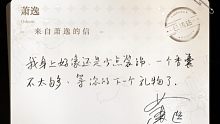 萧逸
来自萧逸的信
我身上好像还是少点装饰,一个香囊
不太够,等你的下一个礼物了。
萧逸